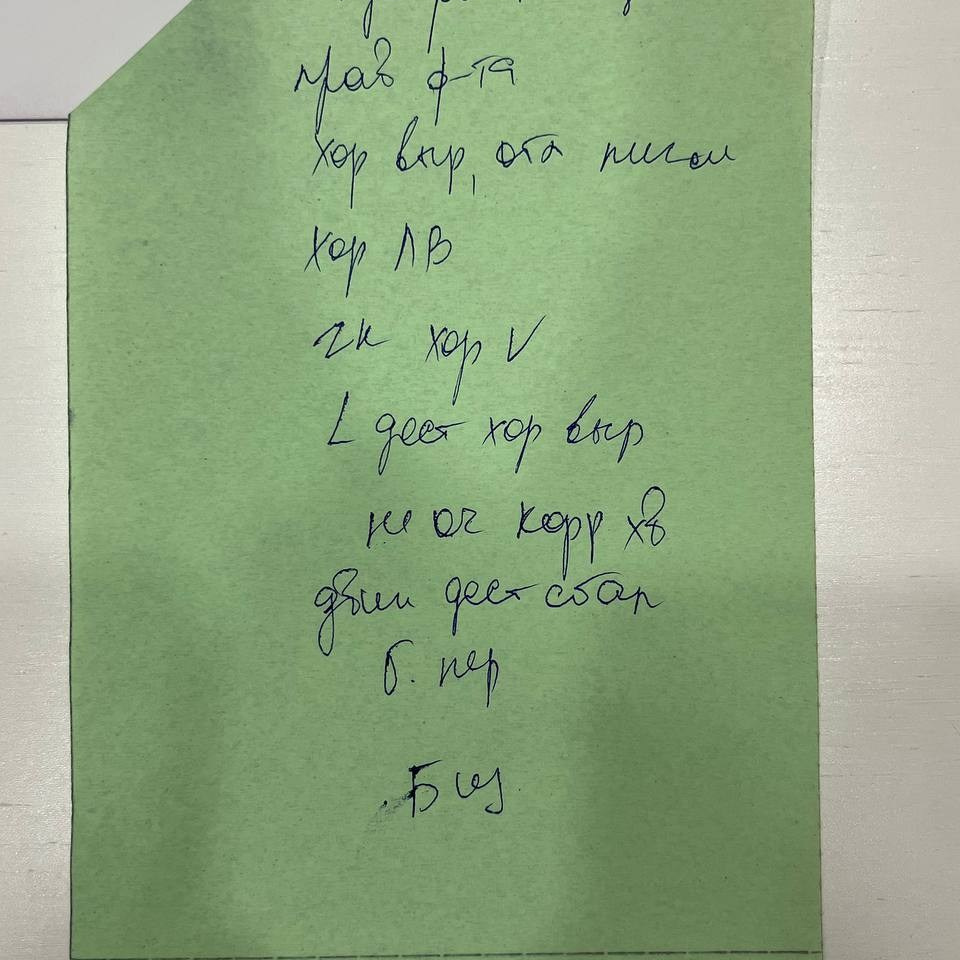 прав ф-та
хор выр, отл пигм
хор ЛВ
гк хор V
L дест хор выр
не оч корр хв
движ дест собак
б. пер